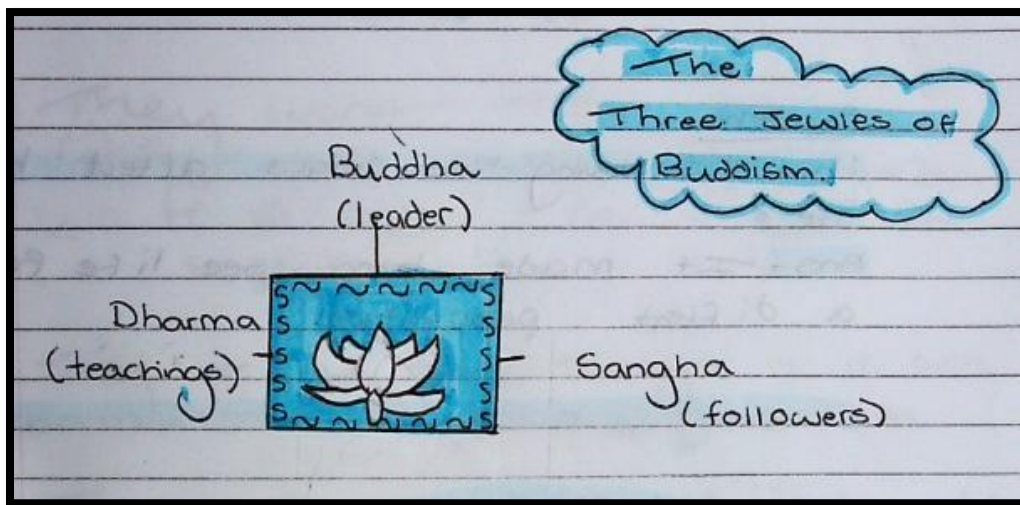 The
Three Jewles of
Buddism.
Buddha
(leader)
Dharma
(teachings)
Sangha
(followers)